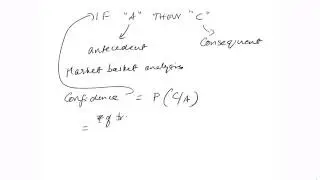 IF "A" THEN "C"
antecedent
Consequent
Market basket analysis
Confidence = P(C/A)
= # of tr.